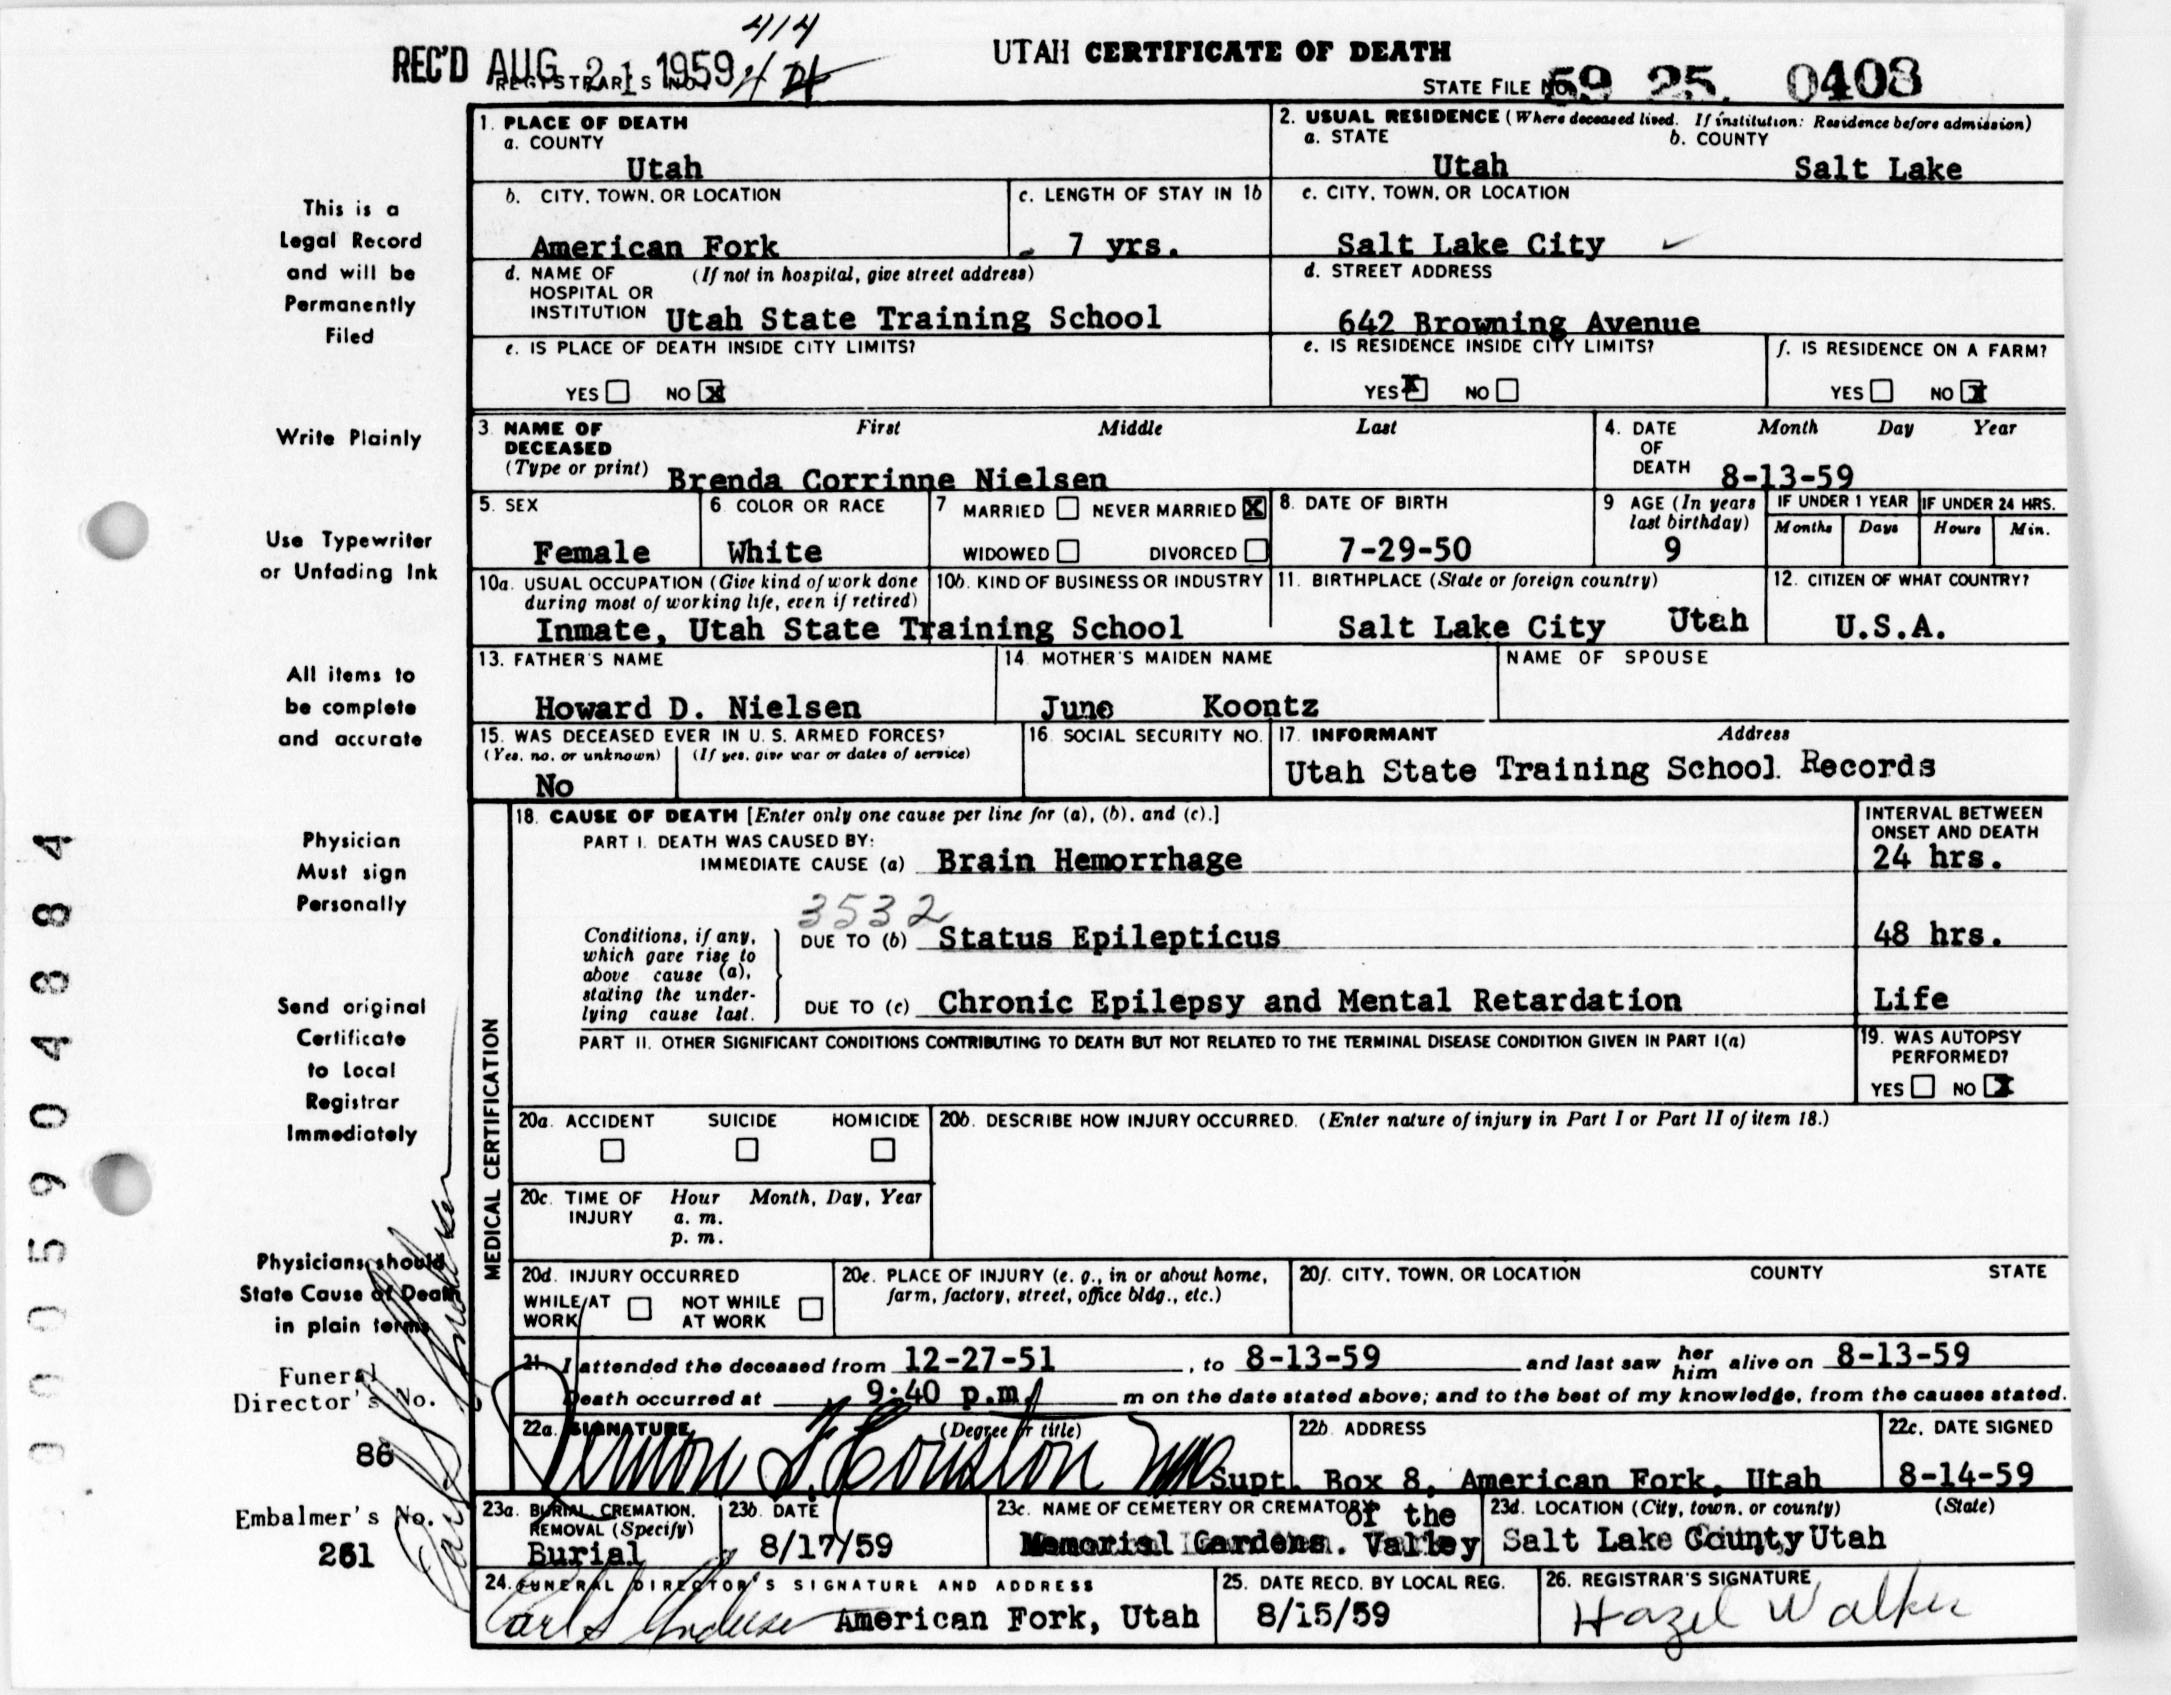 414
REC'D AUG 21 1959
REGISTRAR'S NO.
UTAH CERTIFICATE OF DEATH
STATE FILE NO. 59 25 0408
This is a
Legal Record
and will be
Permanently
Filed
Write Plainly
Use Typewriter
or Unfading Ink
All items to
be complete
and accurate
Physician
Must sign
Personally
Send original
Certificate
to Local
Registrar
Immediately
Physicians should
State Cause of Death
in plain terms
Funeral
Director's No.
86
Embalmer's No.
261
1. PLACE OF DEATH
a. COUNTY
Utah
2. USUAL RESIDENCE (Where deceased lived. If institution: Residence before admission)
a. STATE
Utah
b. COUNTY
Salt Lake
b. CITY, TOWN, OR LOCATION
American Fork
c. LENGTH OF STAY IN 1b
7 yrs.
c. CITY, TOWN, OR LOCATION
Salt Lake City
d. NAME OF HOSPITAL OR INSTITUTION (If not in hospital, give street address)
Utah State Training School
d. STREET ADDRESS
642 Browning Avenue
e. IS PLACE OF DEATH INSIDE CITY LIMITS?
YES NO X
e. IS RESIDENCE INSIDE CITY LIMITS?
YES X NO
f. IS RESIDENCE ON A FARM?
YES NO X
3. NAME OF DECEASED (Type or print) First Middle Last
Brenda Corrinne Nielsen
4. DATE OF DEATH Month Day Year
8-13-59
5. SEX
Female
6. COLOR OR RACE
White
7 MARRIED NEVER MARRIED X
WIDOWED DIVORCED
8. DATE OF BIRTH
7-29-50
9 AGE (In years last birthday)
9
IF UNDER 1 YEAR
Months Days
IF UNDER 24 HRS.
Hours Min.
10a. USUAL OCCUPATION (Give kind of work done during most of working life, even if retired)
10b. KIND OF BUSINESS OR INDUSTRY
Inmate, Utah State Training School
11. BIRTHPLACE (State or foreign country)
Salt Lake City Utah
12. CITIZEN OF WHAT COUNTRY?
U.S.A.
13. FATHER'S NAME
Howard D. Nielsen
14. MOTHER'S MAIDEN NAME
June Koontz
NAME OF SPOUSE
15. WAS DECEASED EVER IN U. S. ARMED FORCES?
(Yes, no, or unknown) (If yes, give war or dates of service)
No
16. SOCIAL SECURITY NO.
17. INFORMANT Address
Utah State Training School Records
MEDICAL CERTIFICATION
18. CAUSE OF DEATH [Enter only one cause per line for (a), (b), and (c).]
PART I. DEATH WAS CAUSED BY:
IMMEDIATE CAUSE (a) Brain Hemorrhage
INTERVAL BETWEEN ONSET AND DEATH
24 hrs.
3532
Conditions, if any, which gave rise to above cause (a), stating the underlying cause last.
DUE TO (b) Status Epilepticus
48 hrs.
DUE TO (c) Chronic Epilepsy and Mental Retardation
Life
PART II. OTHER SIGNIFICANT CONDITIONS CONTRIBUTING TO DEATH BUT NOT RELATED TO THE TERMINAL DISEASE CONDITION GIVEN IN PART I(a)
19. WAS AUTOPSY PERFORMED?
YES NO X
20a. ACCIDENT SUICIDE HOMICIDE
20b. DESCRIBE HOW INJURY OCCURRED. (Enter nature of injury in Part I or Part II of item 18.)
20c. TIME OF INJURY Hour Month, Day, Year
a. m.
p. m.
20d. INJURY OCCURRED
WHILE AT WORK NOT WHILE AT WORK
20e. PLACE OF INJURY (e. g., in or about home, farm, factory, street, office bldg., etc.)
20f. CITY, TOWN, OR LOCATION COUNTY STATE
21. I attended the deceased from 12-27-51, to 8-13-59 and last saw her him alive on 8-13-59
Death occurred at 9:40 p.m. m on the date stated above; and to the best of my knowledge, from the causes stated.
22a. SIGNATURE (Degree or title)
Vernon F. Houston MD Supt.
22b. ADDRESS
Box 8, American Fork, Utah
22c. DATE SIGNED
8-14-59
23a. BURIAL, CREMATION, REMOVAL (Specify)
Burial
23b. DATE
8/17/59
23c. NAME OF CEMETERY OR CREMATORY
Memorial Gardens of the Valley
23d. LOCATION (City, town, or county) (State)
Salt Lake County Utah
24. FUNERAL DIRECTOR'S SIGNATURE AND ADDRESS
American Fork, Utah
25. DATE RECD. BY LOCAL REG.
8/15/59
26. REGISTRAR'S SIGNATURE
Hazel Walker